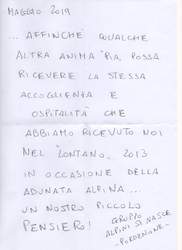 MAGGIO 2019
... AFFINCHE QUALCHE
ALTRA ANIMA PIA POSSA
RICEVERE LA STESSA
ACCOGLIENZA E
OSPITALITÀ CHE
ABBIAMO RICEVUTO NOI
NEL "LONTANO" 2013
IN OCCASIONE DELLA
ADUNATA ALPINA...
UN NOSTRO PICCOLO
PENSIERO!
GRUPPO
ALPINI SI NASCE
-PORDENONE-